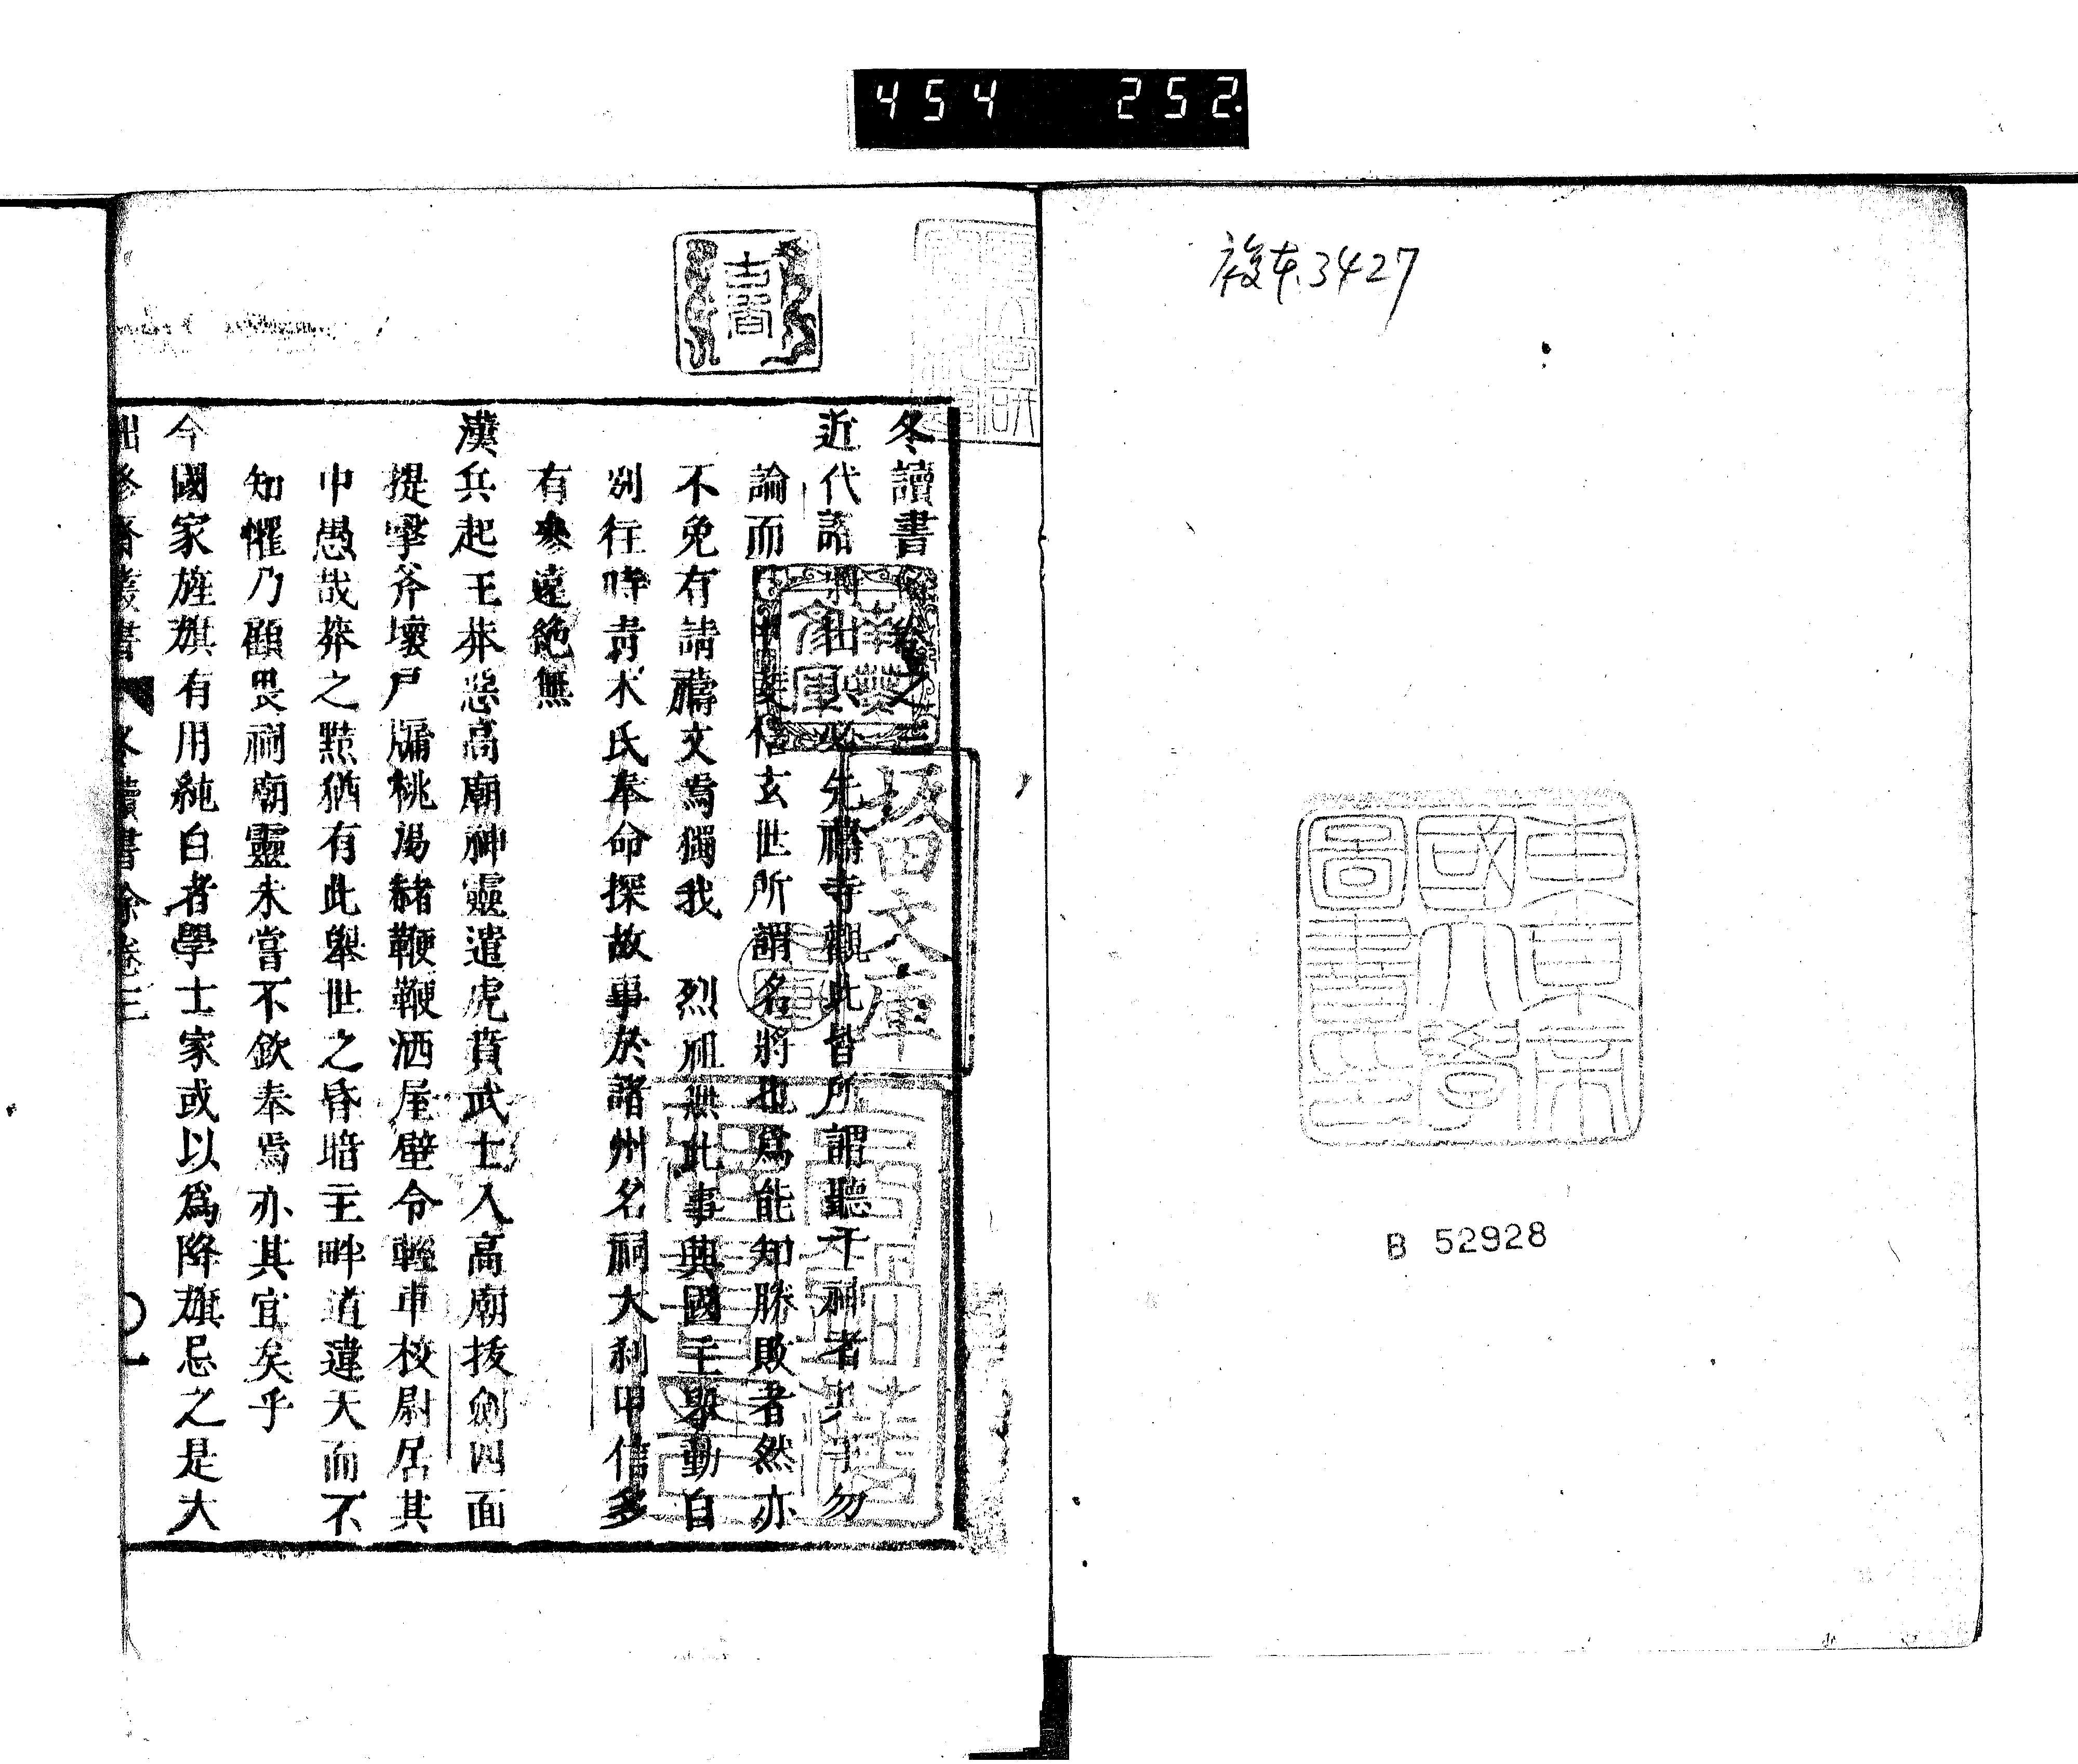 454 252
複本 3427
東京帝
國大學
圖書印
B 52928
阪田文庫
冬讀書餘卷之三
近代諸將出兵必先禱寺觀此皆所謂聽于神者勿
論而已甲斐信玄世所謂名將也爲能知勝敗者然亦
不免有請禱文焉獨我 烈祖無此事興國主擧動自
別行時靑木氏奉命探故事於諸州名祠大刹甲信多
有參遠絶無
漢兵起王莽惡高廟神靈遣虎賁武士入高廟拔劍四面
提擊斧壞戸牖桃湯赭鞭鞭洒屋壁令輕車校尉居其
中愚哉莽之黠猶有此擧世之昏暗主畔道違天而不
知懼乃顧畏祠廟靈未嘗不欽奉焉亦其宜矣乎
今國家旌旗有用純白者學士家或以爲降旗忌之是大
冬讀書餘卷三